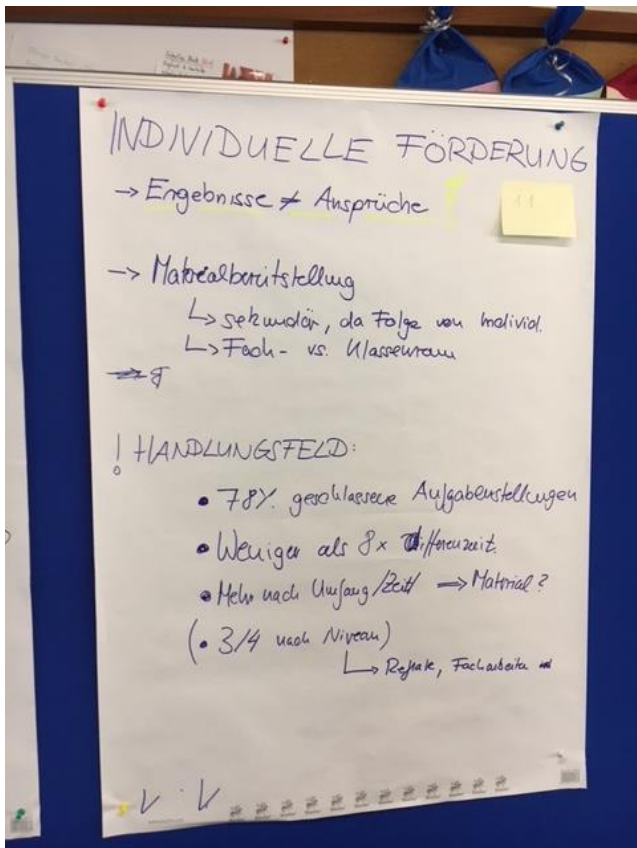 INDIVIDUELLE FÖRDERUNG
→ Ergebnisse ≠ Ansprüche !
11
→ Materialbereitstellung
↳ sekundär, da Folge von Individ.
↳ Fach- vs. Klassenraum
! HANDLUNGSFELD:
• 78% geschlossene Aufgabenstellungen
• Weniger als 8x differenziert.
• Mehr nach Umfang/Zeit/ ⇒ Material?
(• 3/4 nach Niveau)
↳ Referate, Facharbeiten